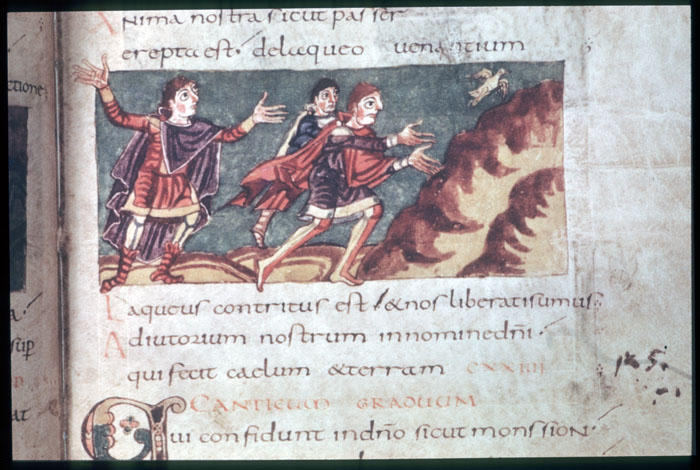 ctione
A
Nima nostra sicut passer
erepta est· de laqueo uenantium
L
aqueus contritus est / & nos liberati sumus;
A
diutorium nostrum in nomine dñi·
qui fecit caelum & terram CXXIIII
CANTICUM GRADUUM
Qui confidunt in dño sicut mons sion·
a·
sup
at